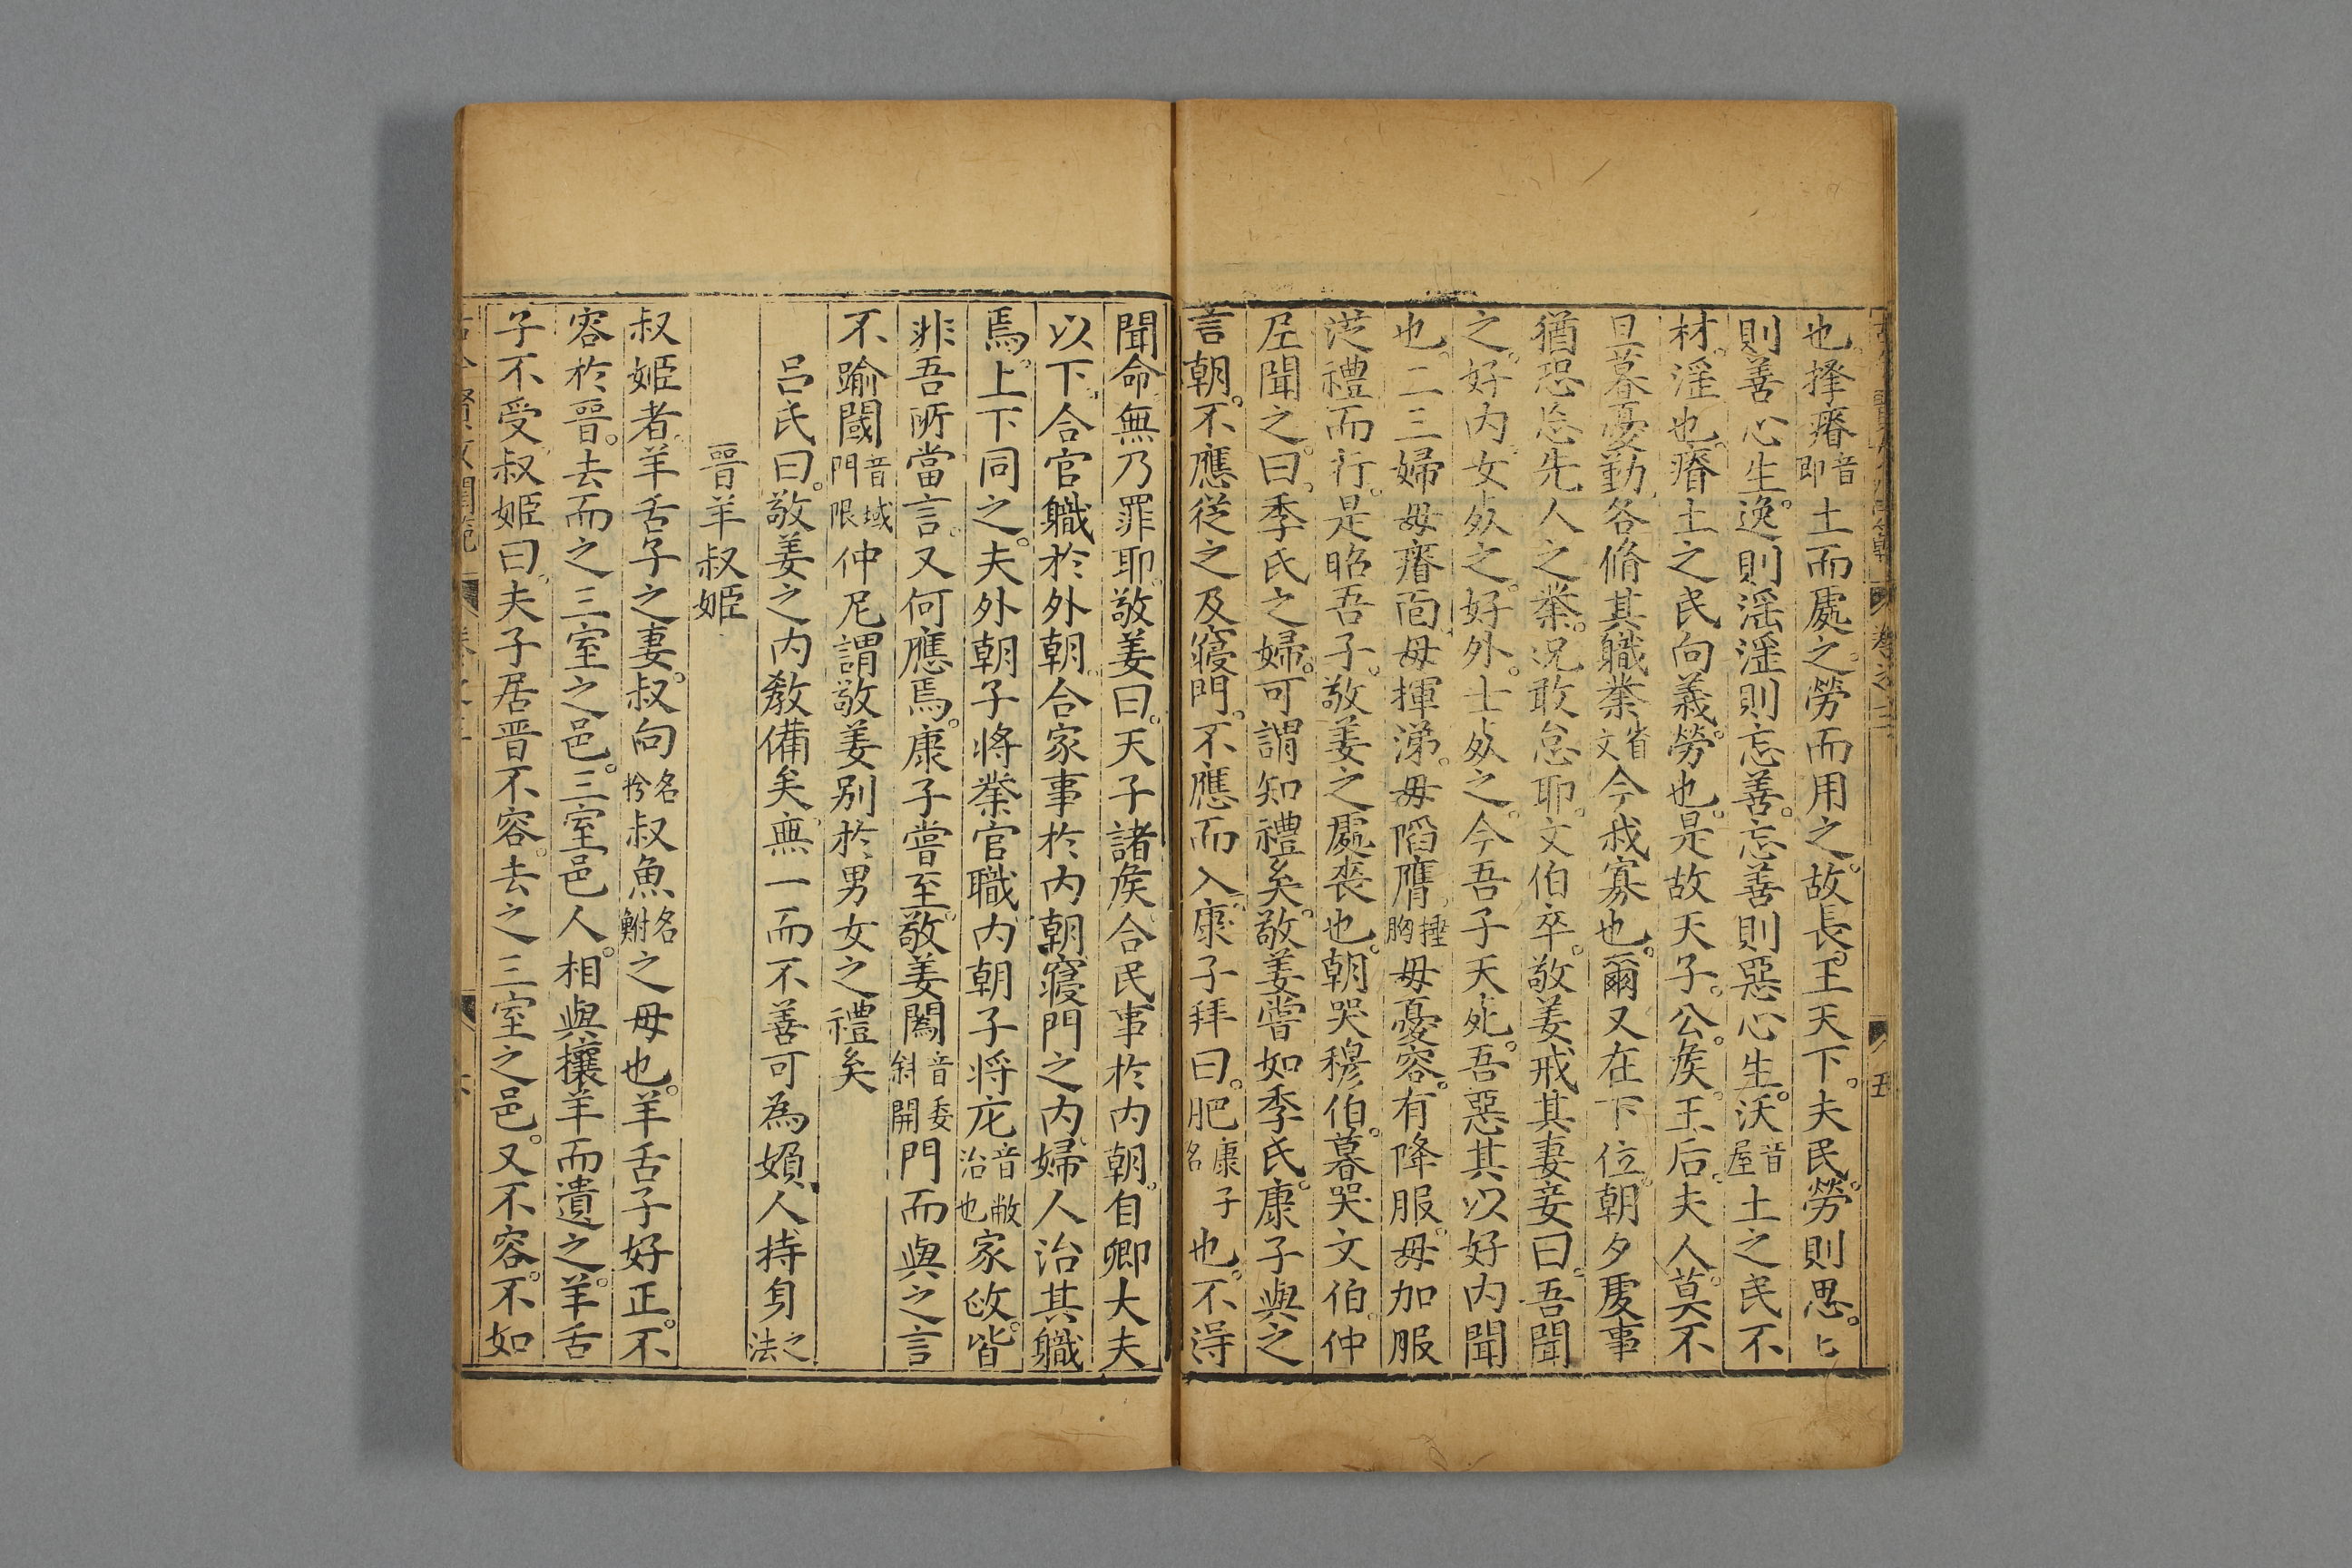 也。擇瘠音即土而處之。勞而用之。故長王天下。夫民勞。則思。匕
則善心生。逸則滛滛則忘善。忘善則惡心生。沃音屋土之民不
材。滛也。瘠土之民向義勞也。是故天子。公。矦。王后。夫人。莫不
旦暮憂勤各脩其職業省文今我寡也。爾又在下位。朝夕䖏事
猶恐忘先人之業。况敢怠耶。文伯卒。敬姜戒其妻妾曰。吾聞
之。好内。女死之。好外。士死之。今吾子夭死。吾惡其以好内聞
也。二三婦毋瘠靣。毋揮涕。毋䧟膺捶胸毋憂容。有降服。毋加服
從禮而行。是昭吾子。敬姜之處喪也。朝哭穆伯。暮哭文伯。仲
尼聞之。曰。季氏之婦。可謂知禮矣。敬姜嘗如季氏。康子與之
言朝。不應從之及寢門。不應而入。康子拜曰。肥康子名也。不得
聞命。無乃罪耶。敬姜曰。天子諸矦。合民事於内朝。自卿大夫
以下。合官職於外朝。合家事於内朝。寢門之内。婦人治其職
焉。上下同之。夫外朝子將業官職。内朝子將庀音敝治也家政。皆
非吾所當言。又何應焉。康子嘗至。敬姜䦱音委斜開門而與之言
不踰閾音域門限仲尼謂敬姜別於男女之禮矣
呂氏曰。敬姜之内教備矣。無一而不善可為嬪人持身之法
晉羊叔姬
叔姬者。羊舌子之妻。叔向名肸叔魚名鮒之母也。羊舌子好正。不
容於晉。去而之三室之邑。三室邑人。相與攘羊而遺之。羊舌
子不受。叔姬曰。夫子居晉不容。去之三室之邑。又不容。不如